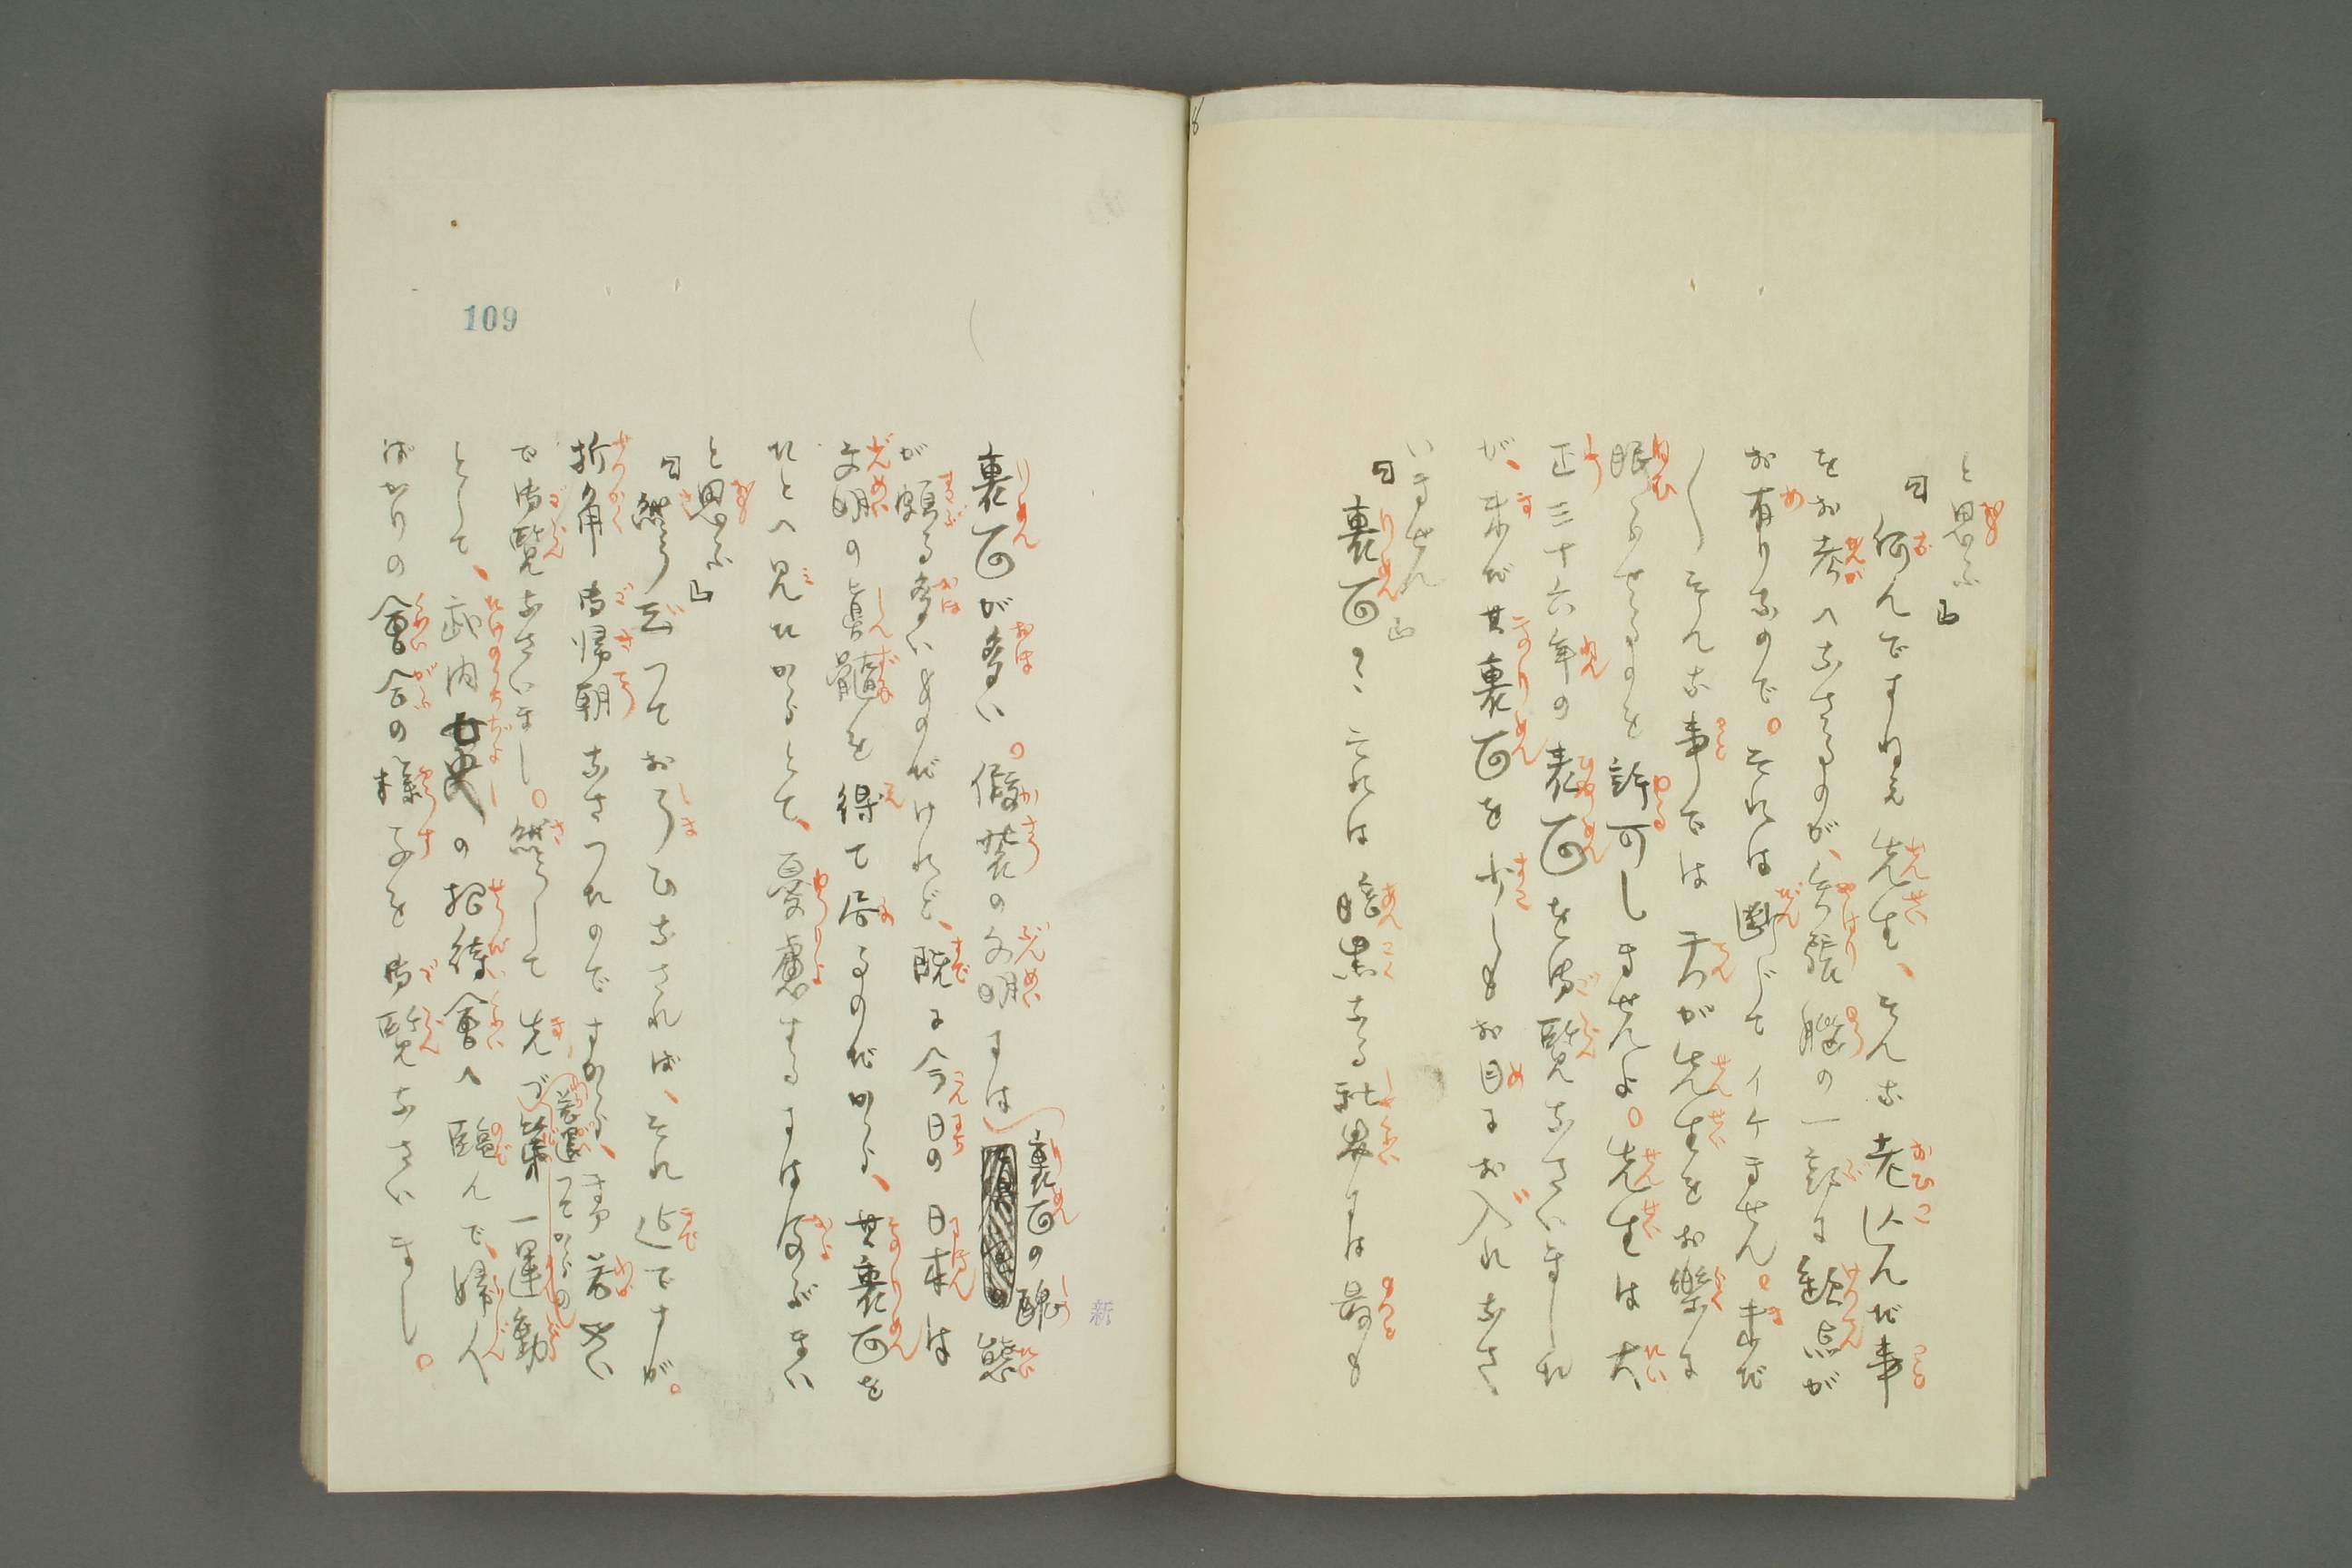 と思ふ」
「何んですねえ先生、そんな老込んだ事
をお考へなさるのが、矢張腦の一部に缺点が
お有りなので。それは斷じてイケません。未だ
〳〵そんな事では天が先生をお樂に
眠らせるのを許可しませんよ。先生は大
正三十六年の表面を御覽なさいました
が、未だ其裏面を少しもお目にお入れなさ
いません」
「裏面？それは暗黒なる社界には最も
裏面が多い。假裝の文明には裏面の醜態
が頗る多いものだけれど、既に今日の日本は
文明の眞髓を得て居るのだから、其裏面を
たとへ見たからとて、憂慮するには及ぶまい
と思ふ」
「然う云つておしまひなされば、それ迄ですが。
折角御帰朝なさつたのですから、まア若い
で御覽なさいまし。然うして先づ
若返つて から の
一運動
として、武内女史の招待會へ臨んで、婦人
ばかりの會合の樣子を御覽なさいまし。
109
新